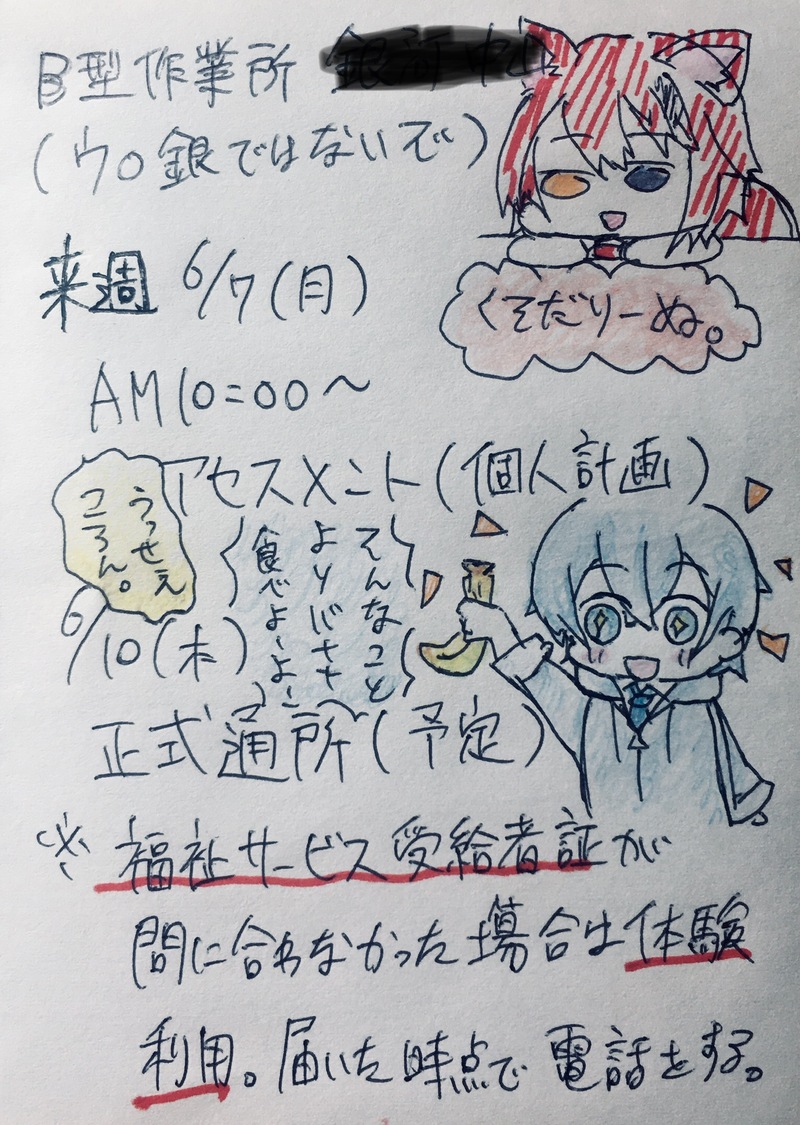 B型作業所
(ウロ銀ではないで)
くそだりーぬ。
来週 6/7(月)
AM10:00〜
アセスメント(個人計画)
うっせえ
ころん。
そんなこと
よりバナナ
食べよーよー
6/10(木)
正式通所(予定)
※福祉サービス受給者証が
間に合わなかった場合は体験
利用。届いた時点で電話をする。